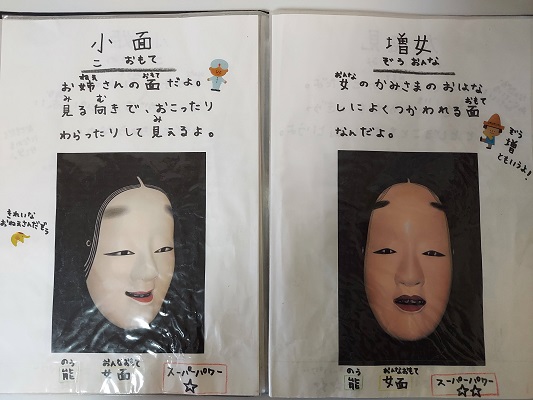 小面
こおもて
お姉さんの面だよ。
ねえ おもて
見る向きで、おこったり
み む
わらったりして見えるよ。
み
きれいな
おねえさんだぞう
のう おんなおもて
能 女面
スーパーパワー
☆☆
増女
ぞうおんな
女のかみさまのおはな
おんな
しによくつかわれる面
おもて
なんだよ。
ぞう
増
ともいうよ!
のう おんなおもて
能 女面
スーパーパワー
☆☆